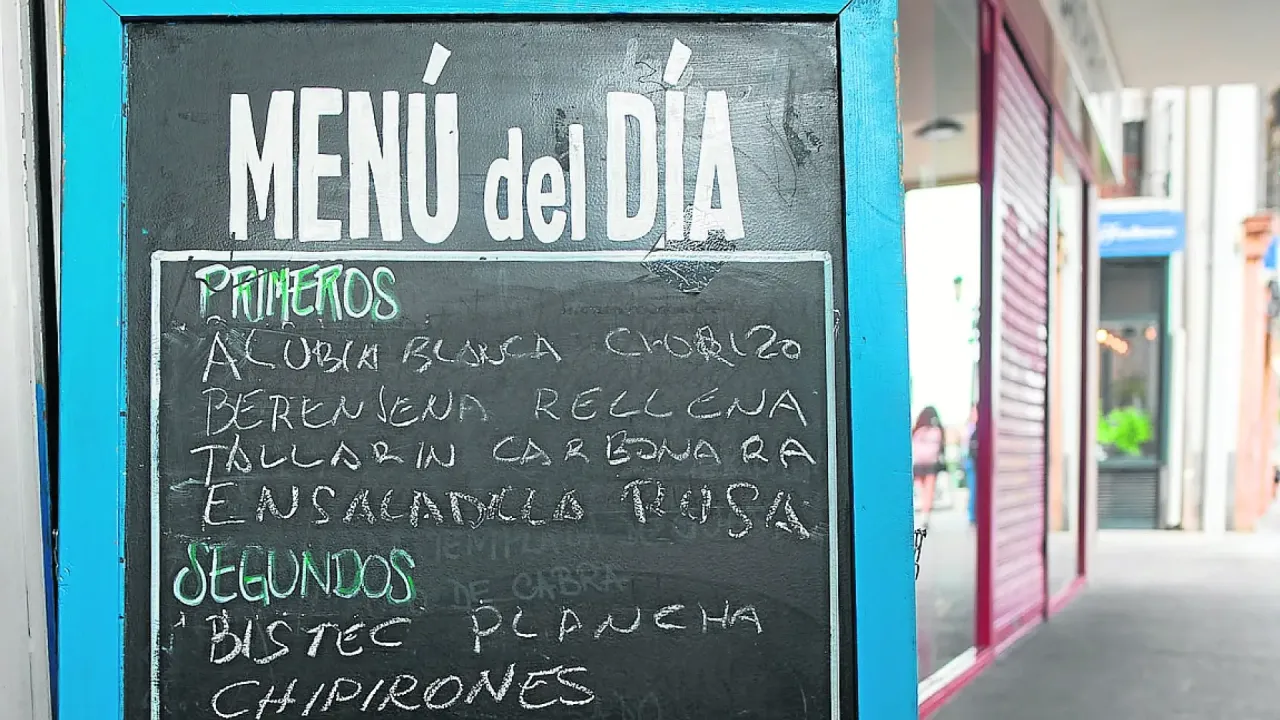 MENÚ del DÍA
PRIMEROS
ALUBIA BLANCA CHORIZO
BERENJENA RELLENA
TALLARIN CARBONARA
ENSALADILLA RUSA
SEGUNDOS
DE CABRA
BISTEC PLANCHA
CHIPIRONES